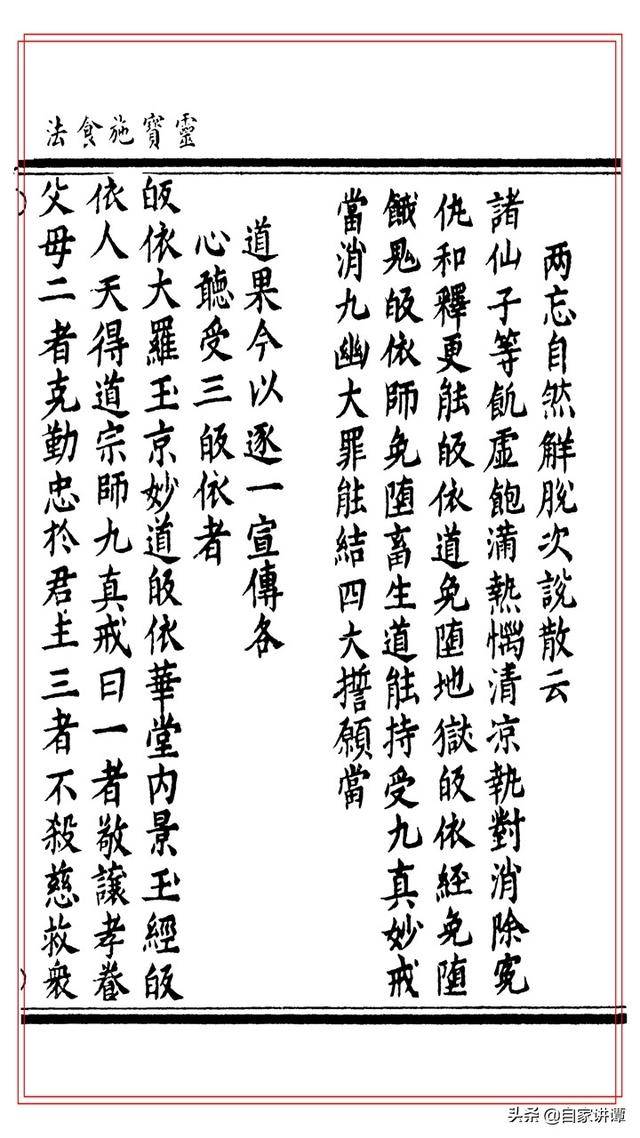 靈寶施食法
两忘自然解脫次說散云
諸仙子等飢虛飽滿熱惱清凉執對消除寃
仇和釋更能皈依道免堕地獄皈依經免堕
餓鬼皈依師免堕畜生道能持受九真妙戒
當消九幽大罪能結四大誓願當
道果今以逐一宣傳各
心聽受三皈依者
皈依大羅玉京妙道皈依華堂內景玉經皈
依人天得道宗師九真戒曰一者敬讓孝養
父母二者克勤忠於君主三者不殺慈救衆
头条 @自家讲谭